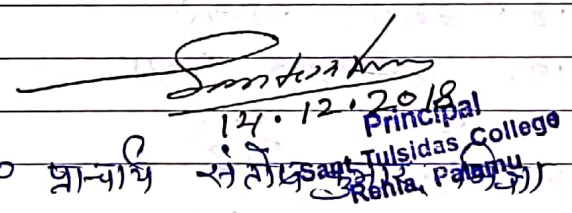 14.12.2018
Principal
Sant Tulsidas College
Rehla, Palamu
प्राचार्य संतोष कुमार